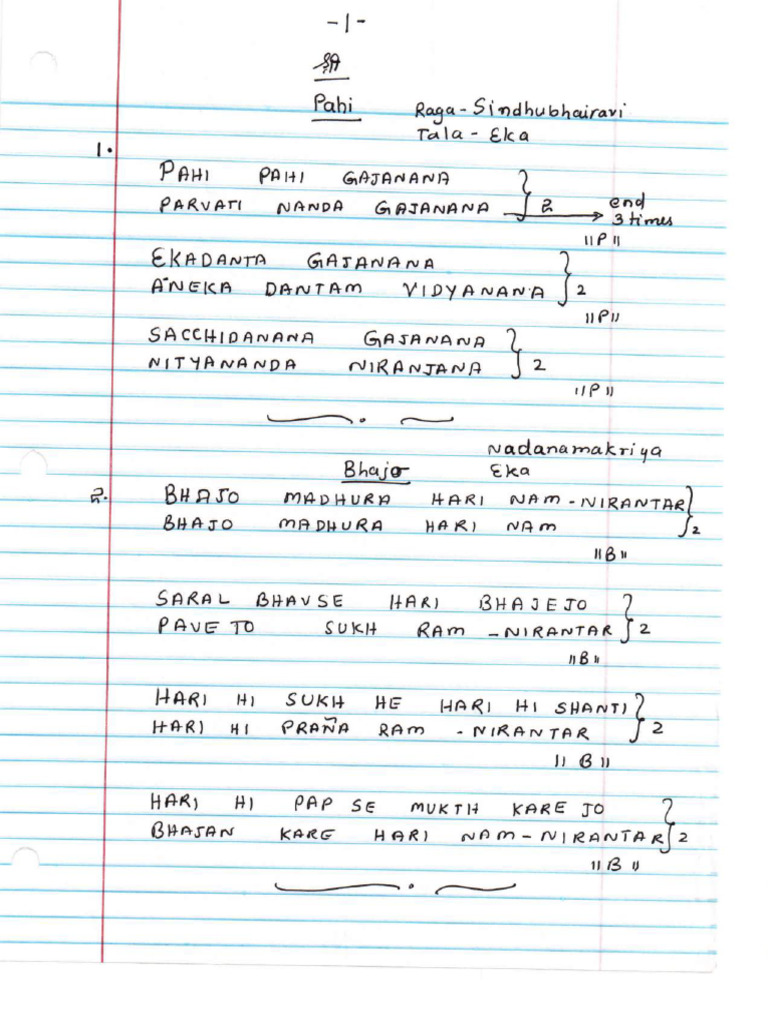 -1-
श्री
Pahi
Raga - Sindhubhairavi
Tala - Eka
1.
PAHI PAHI GAJANANA
PARVATI NANDA GAJANANA } 2 → end 3 times
"P"
EKADANTA GAJANANA
ANEKA DANTAM VIDYANANA } 2
"P"
SACCHIDANANA GAJANANA
NITYANANDA NIRANJANA } 2
"P"
Nadanamakriya
Bhajo Eka
2. BHAJO MADHURA HARI NAM - NIRANTAR
BHAJO MADHURA HARI NAM } 2
"B"
SARAL BHAVSE HARI BHAJEJO
PAVE TO SUKH RAM - NIRANTAR } 2
"B"
HARI HI SUKH HE HARI HI SHANTI
HARI HI PRAÑA RAM - NIRANTAR } 2
"B"
HARI HI PAP SE MUKTH KARE JO
BHAJAN KARE HARI NAM - NIRANTAR } 2
"B"